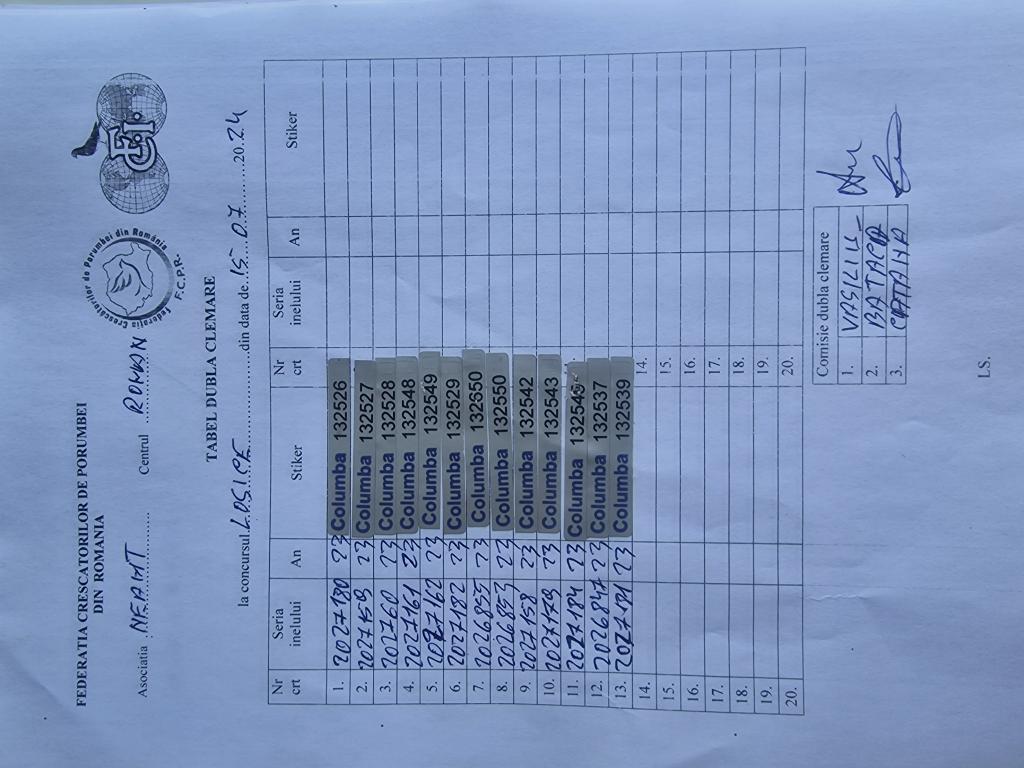 FEDERATIA CRESCATORILOR DE PORUMBEI
DIN ROMANIA
Asociatia NEAMT Centrul ROMAN
Federatia Crescatorilor de Porumbei din România
F.C.P.R.
TABEL DUBLA CLEMARE
la concursul LOSICE din data de 15 07 2024
Nr crt Seria inelului An Stiker Nr crt Seria inelului An Stiker
1. 2027180 23 Columba 132526
2. 2027159 23 Columba 132527
3. 2027160 23 Columba 132528
4. 2027161 23 Columba 132548
5. 2027162 23 Columba 132549
6. 2027182 23 Columba 132529
7. 2026855 23 Columba 132650
8. 2026853 23 Columba 132550
9. 2027158 23 Columba 132542
10. 2027179 23 Columba 132543
11. 2027184 23 Columba 132545
12. 2026847 23 Columba 132537
13. 2027181 23 Columba 132539
14. 14.
15. 15.
16. 16.
17. 17.
18. 18.
19. 19.
20. 20.
Comisie dubla clemare
1. VASILIU
2. BATACA
3.
LS.